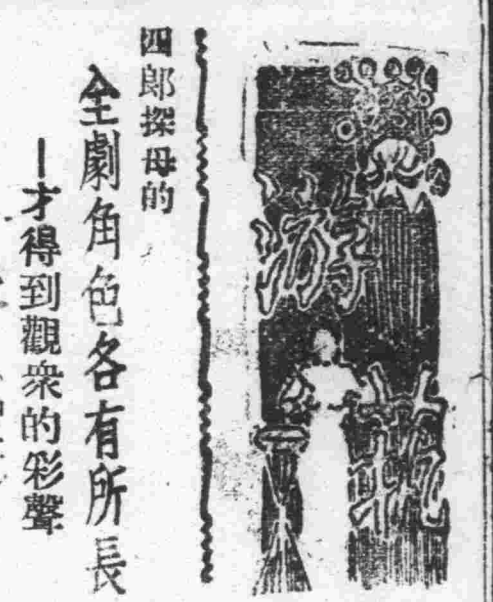 游藝
四郎探母的
全劇角色各有所長
—才得到觀衆的彩聲